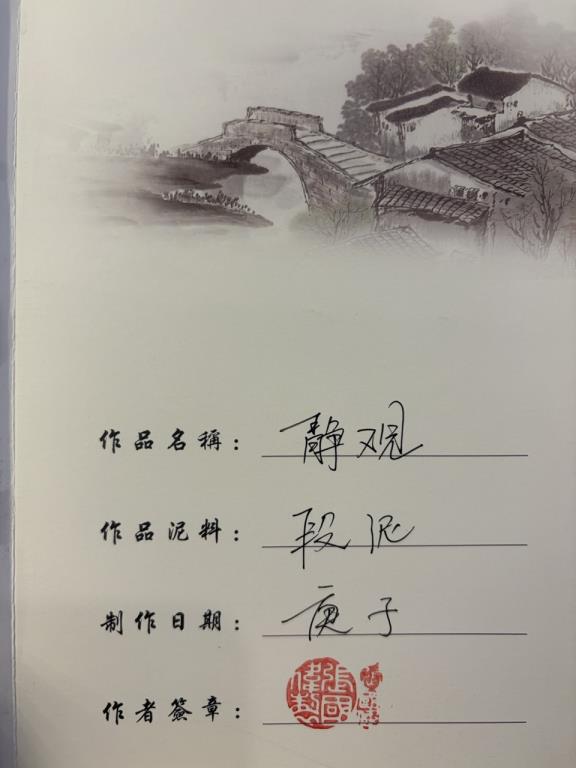 作品名稱：静观
作品泥料：段泥
制作日期：庚子
作者簽章：張國偉製